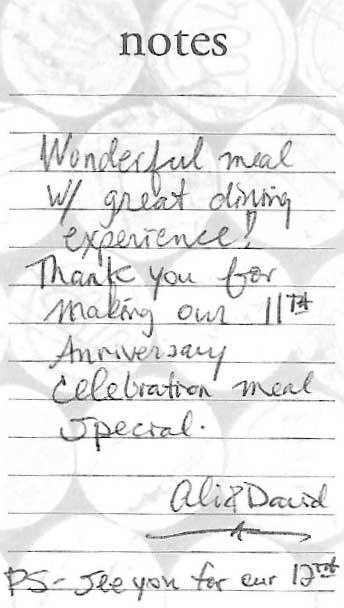 notes
Wonderful meal
W/ great dining
experience!
Thank you for
making our 11th
Anniversary
celebration meal
special.
Ali & David
PS - See you for our 12th